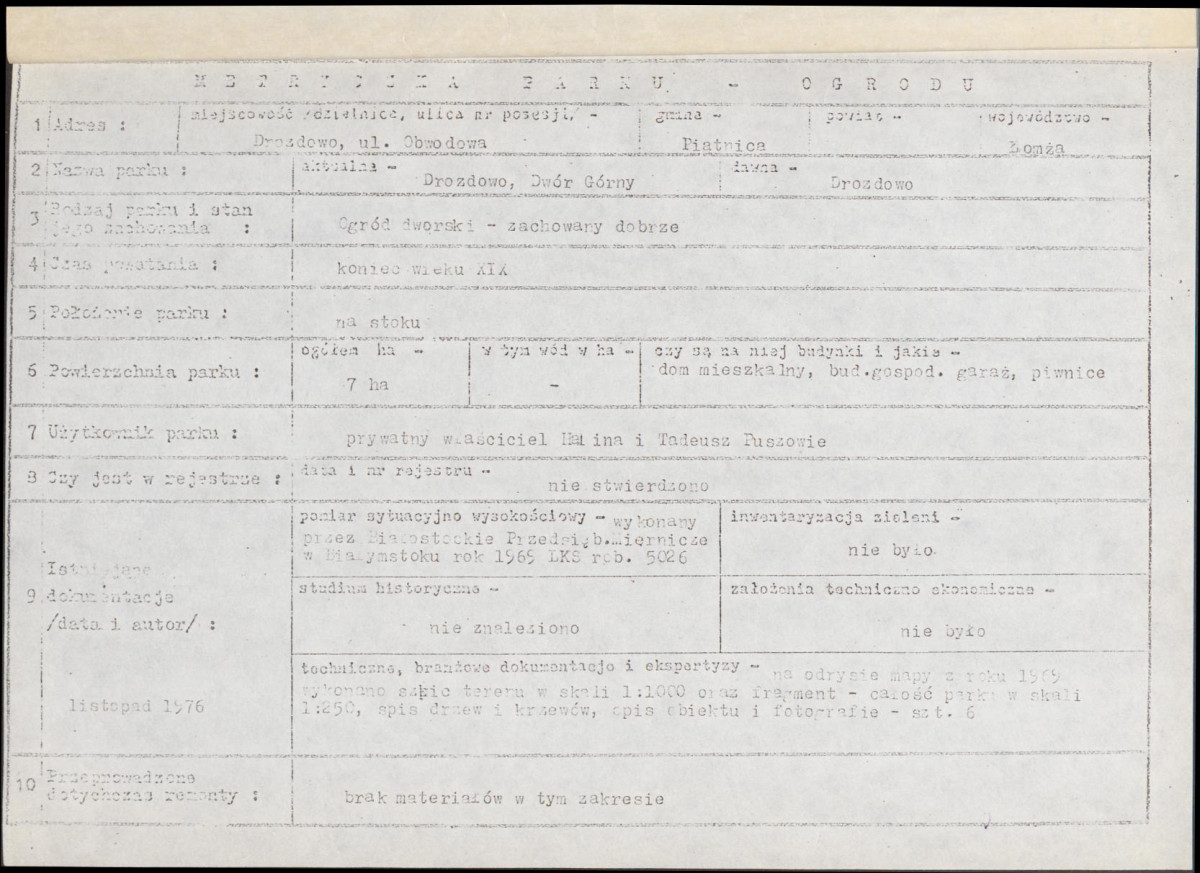 METRYCZKA PARKU - OGRODU
1 Adres : miejscowość /dzielnica, ulica nr posesji/ - gmina - powiat - województwo -
Drozdowo, ul. Obwodowa Piątnica Łomża
2 Nazwa parku : aktualna - dawna -
Drozdowo, Dwór Górny Drozdowo
3 Rodzaj parku i stan
jego zachowania : Ogród dworski - zachowany dobrze
4 Czas powstania : koniec wieku XIX
5 Położenie parku :
na stoku
6 Powierzchnia parku : ogółem ha - w tym wód w ha - czy są na niej budynki i jakie -
7 ha - dom mieszkalny, bud.gospod. garaż, piwnice
7 Użytkownik parku :
prywatny właściciel Halina i Tadeusz Puszowie
8 Czy jest w rejestrze : data i nr rejestru -
nie stwierdzono
9 Istniejące
dokumentacje
/data i autor/ :
listopad 1976
pomiar sytuacyjno wysokościowy - wykonany
przez Białostockie Przedsięb.Miernicze
w Białymstoku rok 1969 LKS rob. 5026
inwentaryzacja zieleni -
nie było
studium historyczne -
nie znaleziono
założenia techniczno ekonomiczne -
nie było
techniczne, branżowe dokumentacje i ekspertyzy - na odrysie mapy z roku 1969
wykonano szkic terenu w skali 1:1000 oraz fragment - całość parku w skali
1:250, spis drzew i krzewów, opis obiektu i fotografie - szt. 6
10 Przeprowadzone
dotychczas remonty :
brak materiałów w tym zakresie